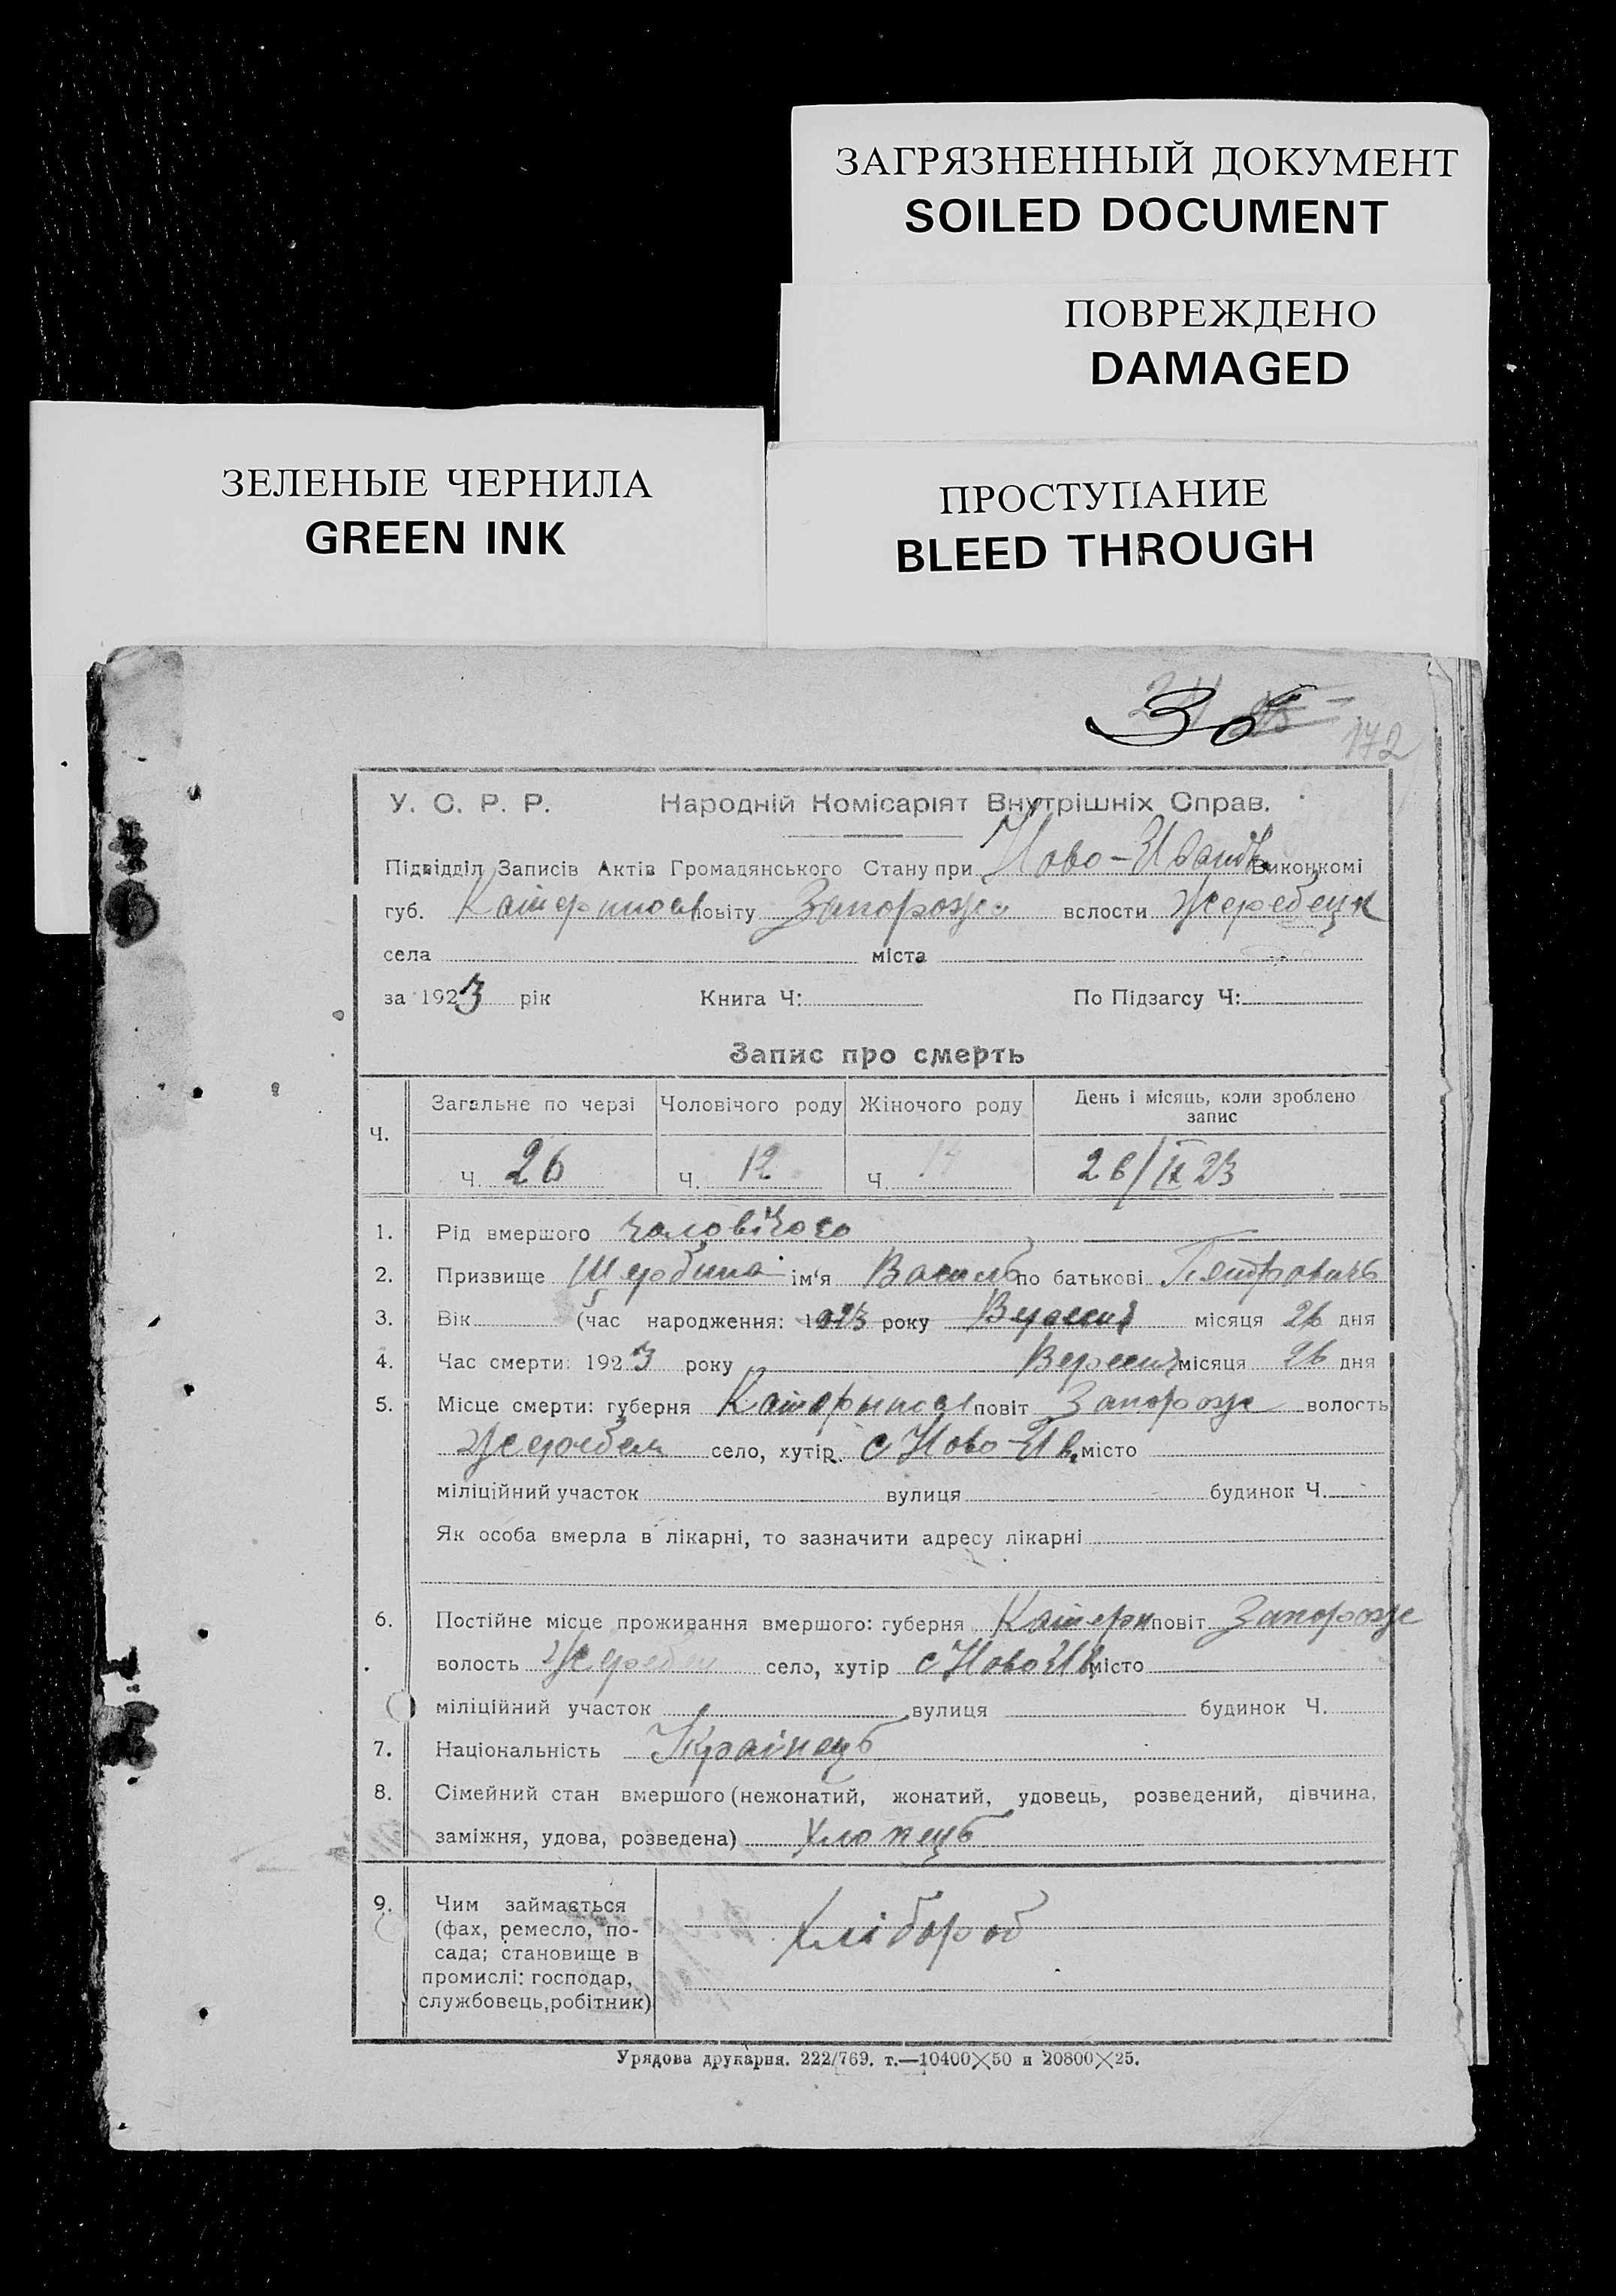 ЗАГРЯЗНЕННЫЙ ДОКУМЕНТ
SOILED DOCUMENT
ПОВРЕЖДЕНО
DAMAGED
ЗЕЛЕНЫЕ ЧЕРНИЛА
GREEN INK
ПРОСТУПАНИЕ
BLEED THROUGH
172
У. С. Р. Р. Народній Комісаріят Внутрішніх Справ.
Підвідділ Записів Актів Громадянського Стану при Ново-Иванів Виконкомі
губ. Катеринослав повіту Запорожс волости Жеребецк
села міста
за 1923 рік Книга Ч: По Підзагсу Ч:
Запис про смерть
Ч. Загальне по черзі Чоловічого роду Жіночого роду День і місяць, коли зроблено запис
Ч. 26 Ч. 12 Ч. 14 26/IX 23
1. Рід вмершого чоловічого
2. Призвище Щербина ім'я Василь по батькові Пятровичь
3. Вік (час народження: 1923 року Вересня місяця 26 дня
4. Час смерти: 1923 року Вересня місяця 26 дня
5. Місце смерти: губерня Катеринослав повіт Запорож волость
Жеребец село, хутір. с Ново-Ив. місто
міліційний участок вулиця будинок Ч.
Як особа вмерла в лікарні, то зазначити адресу лікарні
6. Постійне місце проживання вмершого: губерня Катерин повіт Запорож
волость Жеребец село, хутір с Ново Ив місто
міліційний участок вулиця будинок Ч.
7. Національність Українець
8. Сімейний стан вмершого (нежонатий, жонатий, удовець, розведений, дівчина,
заміжня, удова, розведена) Хлопець
9. Чим займається
(фах, ремесло, по-
сада; становище в
промислі: господар,
службовець, робітник)
Хлібороб
Урядова друкарня. 222/769. т.—10400×50 и 20800×25.